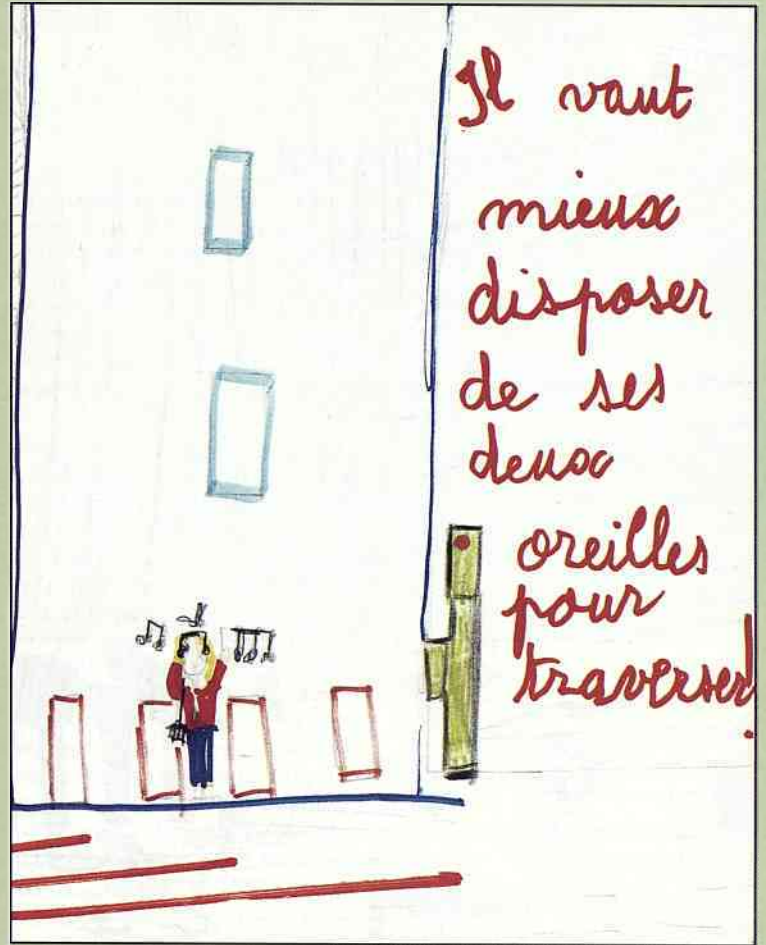 Il vaut
mieux
disposer
de ses
deux
oreilles
pour
traverser!